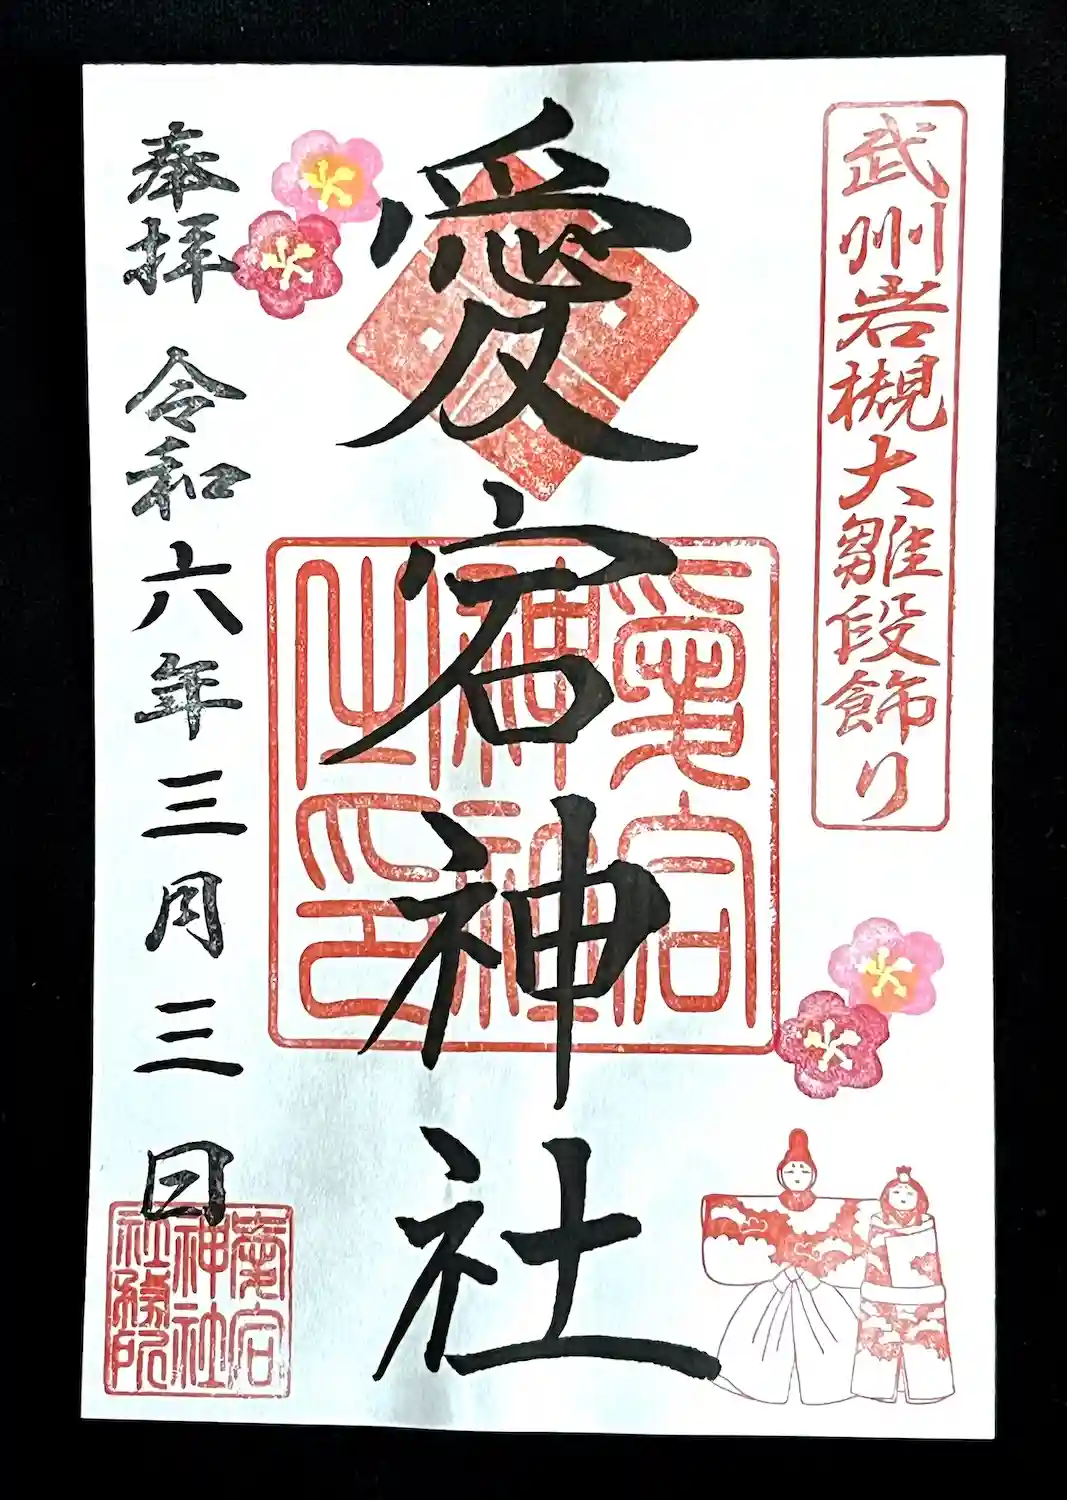 武州岩槻大雛段飾り
愛宕神社
愛宕
神社
之印
奉拝 令和六年三月三日
愛宕
神社
社務所